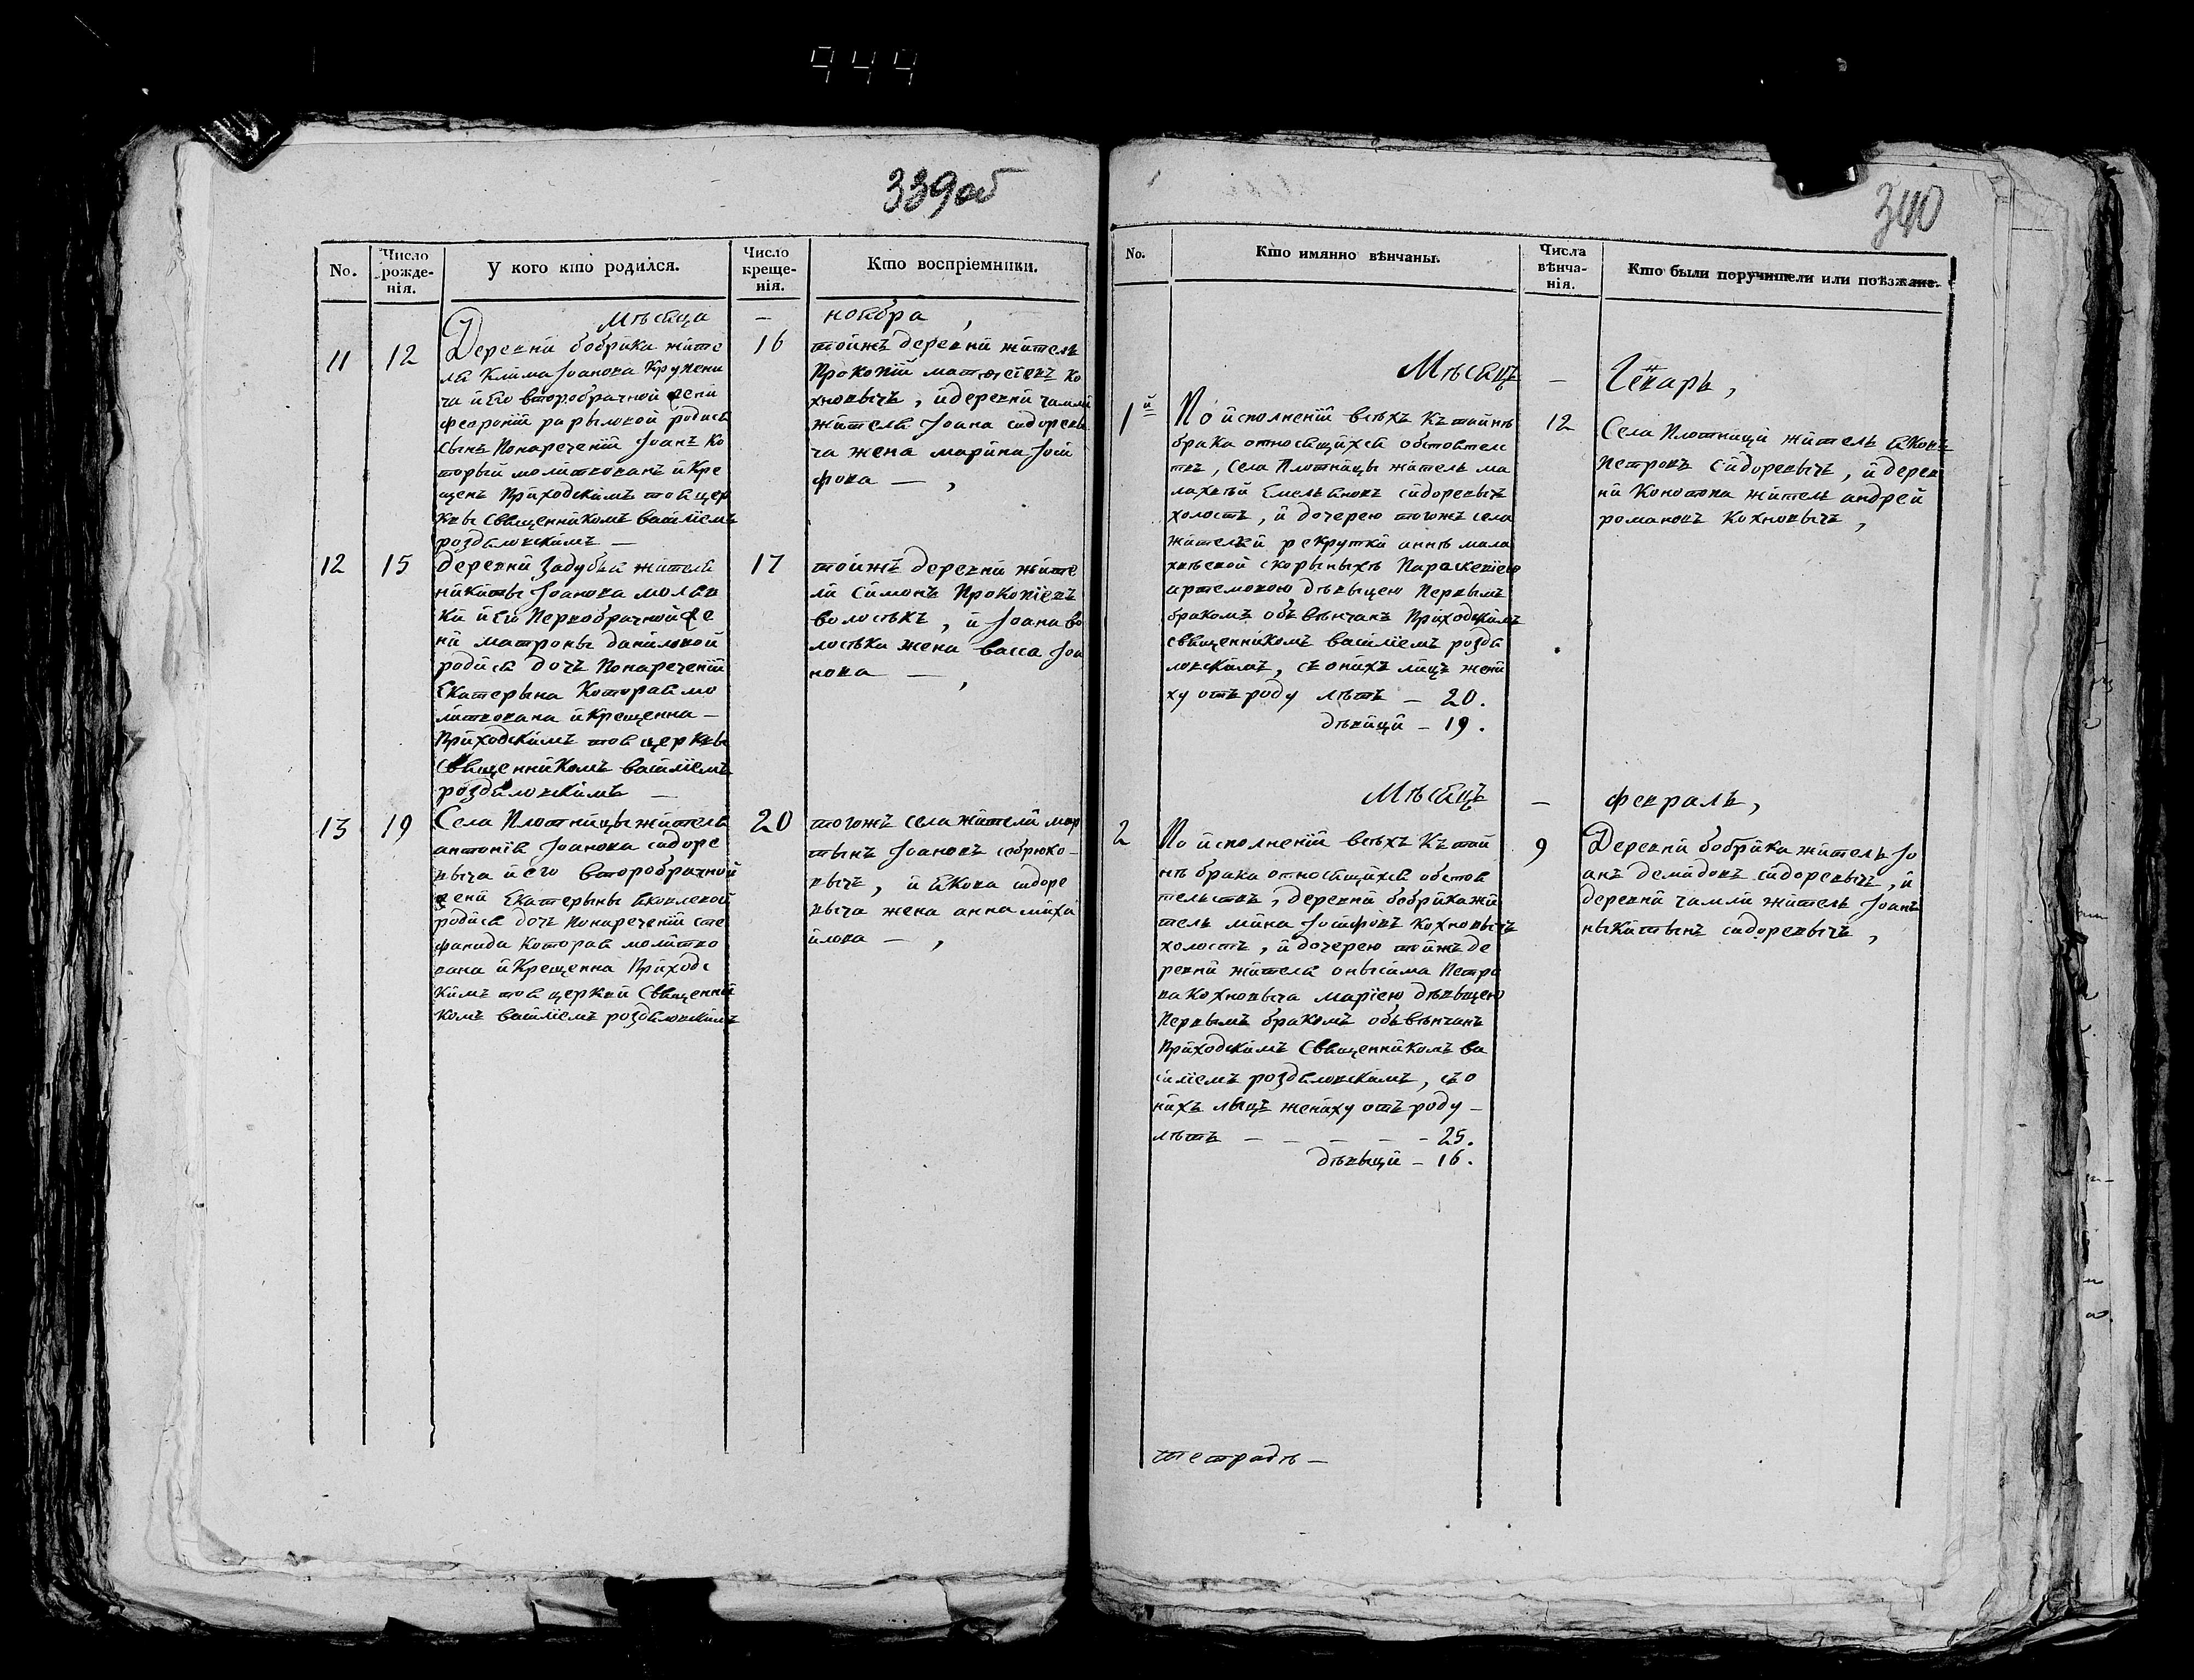 944
339об
No.
Число рожде-
нія.
У кого кто родился.
Число креще-
нія.
Кто воспріемники.
Мѣсяца — ноября,
11
12
Деревни бобрика жите
ля Клима Іоанова Крупени
ча и его второбрачной жени
родися
сынъ Понаречении Іоанъ ко
торый молитвованъ и Кре
щенъ Приходскимъ тоя цер
квы Священникомъ василіемъ
роздяловскимъ —
16
тойжъ деревни жытель
Прокопій матфеевъ ко
хновычъ, и деревни
жителя Іоана сидоревы
ча жена марина Іоси
фова — ,
12
15
Деревни Задубья жителя
никиты Іоанова
и его Первобрачной же
ни матроны даниловой
родися дочь Понаречении
Екатерына Которая мо
литвована и Крещенна —
Приходскимъ тоя церквы
Священникомъ василіемъ
роздяловскимъ —
17
тойжъ деревни жите
ли Симонъ Прокопіевъ
волосѣкъ, и Іоана во
лосѣка жена васса Іоа
нова — ,
13
19
Села Плотницы жителя
антонія Іоанова сидоре
выча и его второбрачной
жени Екатерыны яковлевой
родися дочь Понаречении сте
фанида Которая молитво
вана и Крещенна Приходс
кимъ тоя церкви Священни
комъ василіемъ роздяловскимъ
20
тогожъ села жители мар
тынъ Іоановъ себрюко-
вычъ, и якова сидоре
выча жена анна миха
илова — ,
340
No.
Кто имянно вѣнчаны.
Числа
вѣнча-
нія.
Кто были поручители или поѣзжане.
Мѣсяцъ — Генварь,
1й
По исполненіи всѣхъ къ тайнѣ
брака относящихся обстоятель
ствъ, села Плотницы житель ма
лахвій Емельяновъ сидоревычъ
холостъ, и дочерею тогожъ села
жителки рекрутки аннѣ мала
хвѣевой скорыныхъ Параскевіею
артемовою дѣвыцею Первымъ
бракомъ объ вѣнчанъ Приходскимъ
священникомъ василіемъ роздя
ловскимъ, съ онихъ лицъ жени
ху отъ роду лѣтъ — 20.
дѣвици — 19.
12
Села Плотници житель яковъ
Петровъ сидоревычъ, и дерев
ни Конотопа житель андрей
романовъ Кохновычъ,
Мѣсяцъ — февраль,
2
По исполненіи всѣхъ къ тай
нѣ брака относящихся обстоя
тельствъ, деревни бобрика жи
тель мина Іосифовъ Кохновычъ
холостъ, и дочерею тойжъ де
ревни жителя онысима Петро
ва Кохновыча маріею дѣвыцею
Первымъ бракомъ объ вѣнчанъ
Приходскимъ Священникомъ ва
силіемъ роздяловскимъ, съ о
нихъ лыцъ жениху отъ роду —
лѣтъ — — — — — 25.
дѣвыци — 16.
9
Деревни бобрика житель Іо
анъ демидовъ сидоревычъ, и
деревни житель Іоанъ
ныкитынъ сидоревычъ,
тетрадь —